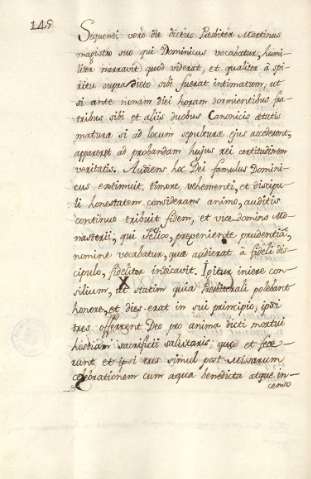 145
Sequenti vero die dictus Presbiter Martinus
magistro suo qui Dominicus vocabatur, humi-
liter narravit quod viderat, et qualiter à spi-
ritu supra dicto sibi fuerat intimatum, ut
si ante nonam diei horam dormientibus fra-
tribus sibi et aliis duobus Canonicis ætatis
matura si ad locum sepulturæ ejus accederent,
appareret ad probandam hujus rei certitudinem
veritatis. Audiens hoc Dei famulus Domini-
cus extimuit timore vehementi, et discipu-
li honestatem considerans animo, auditis
continuo tribuit fidem, et vice domino Mo-
nasterii, qui Felix, præeveniente prudentiâ,
nomine vocabatur, quæ audierat à fideli dis-
cipulo, fideliter indicavit. Igitur iniere con-
silium, ut statim quia Presbiterali polebant
honore, et dies erat in sui principio, ipsi
tres offerrent Deo pro anima dicti mortui
hostiam sacrificii salutaris: quo et fece-
runt et ipsi tres simul post Missarum
celebrationem cum aqua benedicta atque in-
censo